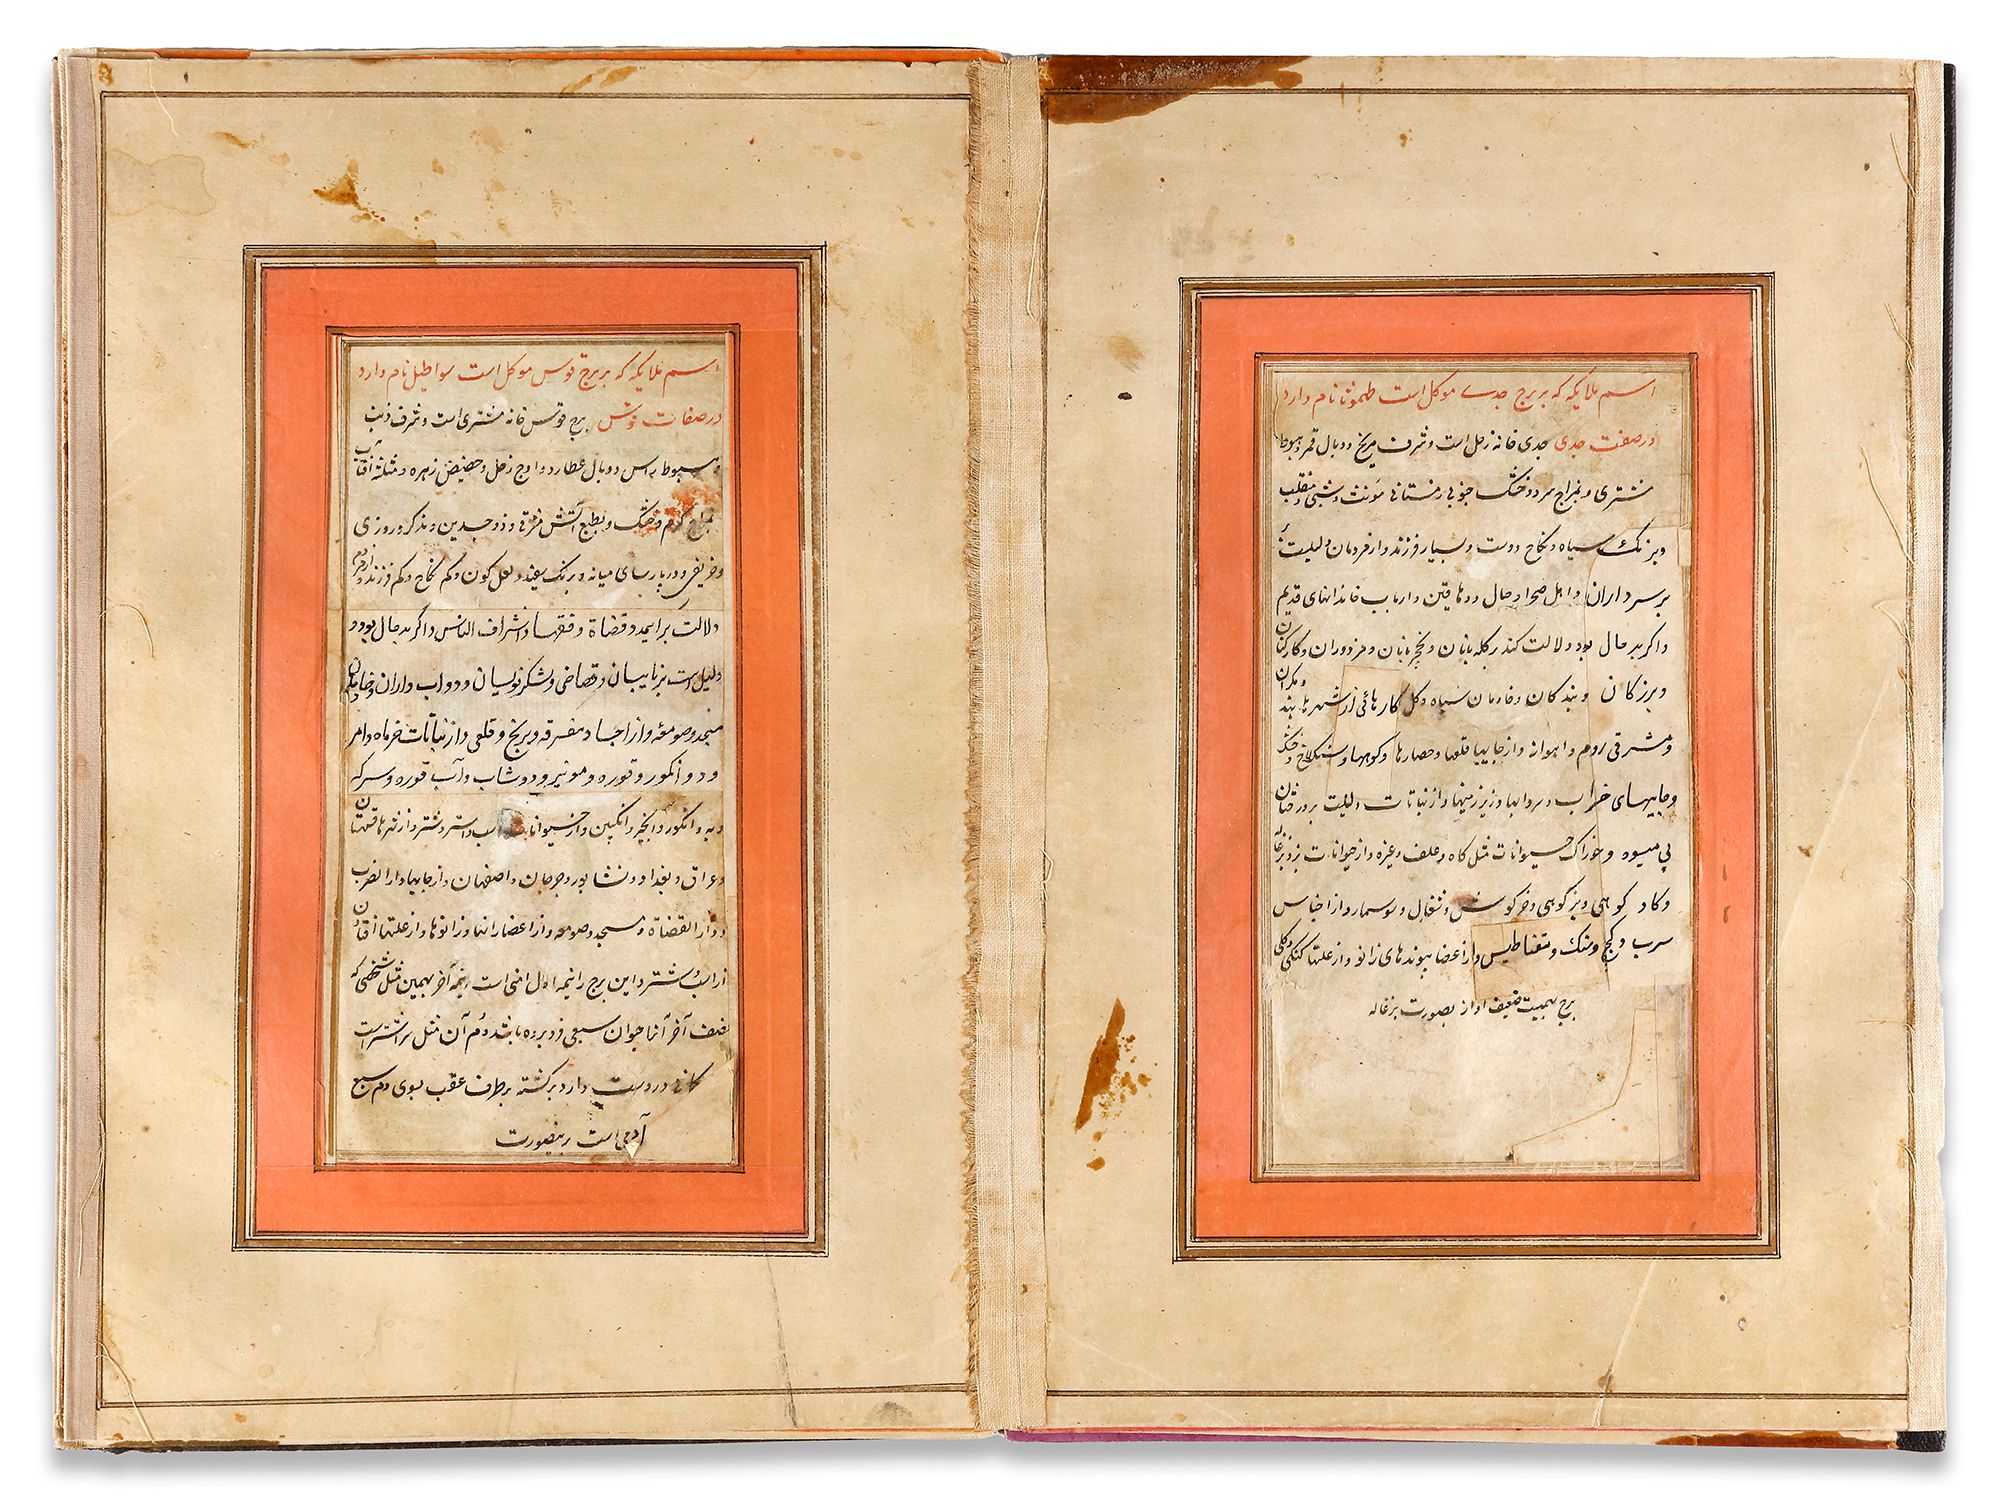 اسم ملایکه که بر برج جدی موکل است طموثا نام دارد
در صفت جدی جدی خانه زحل است و شرف مریخ و وبال قمر و هبوط
مشتری و بمزاج سرد و خشک جنوبی زمستانی مؤنث و شبی و منقلب
و برنک سیاه و نکاح دوست و بسیار فرزند و از مردمان دلیلست
بر سرداران و اهل صحرا و جبال و دهاقین و ارباب خاندانهای قدیم
و اگر بد حال بود دلالت کند بر کله بانان و نخجیربانان و مزدوران و کارکنان
و بزرکان و بندکان و خادمان سیاه و کل کارهائی از شهرها هند و مکران
و مشرقی روم و اهواز و از جایها قلعها و حصارها و کوهها و سنکلاخ و خشک
و جایهای خراب و سردابها و زیر زمینها و از نباتات دلیلست بر درختان
بی میوه و خوراک حیوانات مثل کاه و علف و غیره و از حیوانات بز و بزغاله
و کاو کوهی و بز کوهی و خرکوش و شغال و سوسمار و از اجناس
سرب و کچ و سنک و مقناطیس و از اعضا پیوندهای زانو و از علتها کنکی و کلی
برج بهیمیست ضعیف اواز بصورت بزغاله
اسم ملایکه که بر برج قوس موکل است سواطیل نام دارد
در صفات قوس برج قوس خانه مشتری است و شرف ذنب
و هبوط راس و وبال عطارد و اوج زحل و حضیض زهره و مثلثه آفتاب
بمزاج گرم و خشک و بطبع آتش مشرقی و ذو جسدین و مذکر و روزی
و خریفی و در پارسای میانه و برنک سفید و لعل کون و کم نکاح و کم فرزند و از مردم
دلالت بر ایمه و قضاة و فقها و اشراف الناس و اگر بد حال بود و
دلیل است بر نایبان و قصاص و لشکرنویسان و دواب داران و خادمان
مسجد و صومعه و از اجساد مفرقه و برنج و قلعی و از نباتات خرما و امر
ود و انکور و قوره و مونیز و دوشاب و آب قوره و سرکه
و به و انکور و انجیر و انکبین و از حیوانات اسب و استر و شتر و از شهرها قهستان
و عراق و بغداد و نشابور و جرجان و اصفهان و از جایها دار الضرب
و دار القضاة و مسجد و صومعه و از اعضا رانها و زانوها و از علتها افتادن
از اسب و شتر و این برج را نیمه اول انسی است و نیمه آخر بهیمی مثل شخصی که
نصف آخر آنها حیوان سبعی فرو برده باشد و دم آن مثل سر اشتر است
کمانی در دست دارد برکشته بطرف عقب بسوی دم سبع
آدمی است بدینصورت